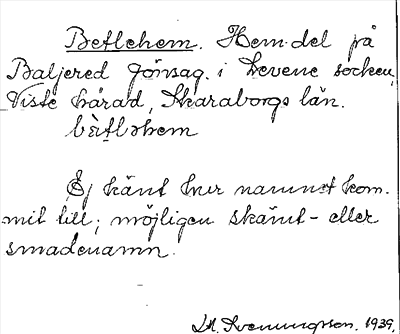 Betlehem. Hem.del på
Baljered Jönsag. i Levene socken,
Viste härad, Skaraborgs län.
bètləhem
Ej känt hur namnet kom-
mit till; möjligen skämt- eller
smädenamn.
M. Svenungsson. 1939.